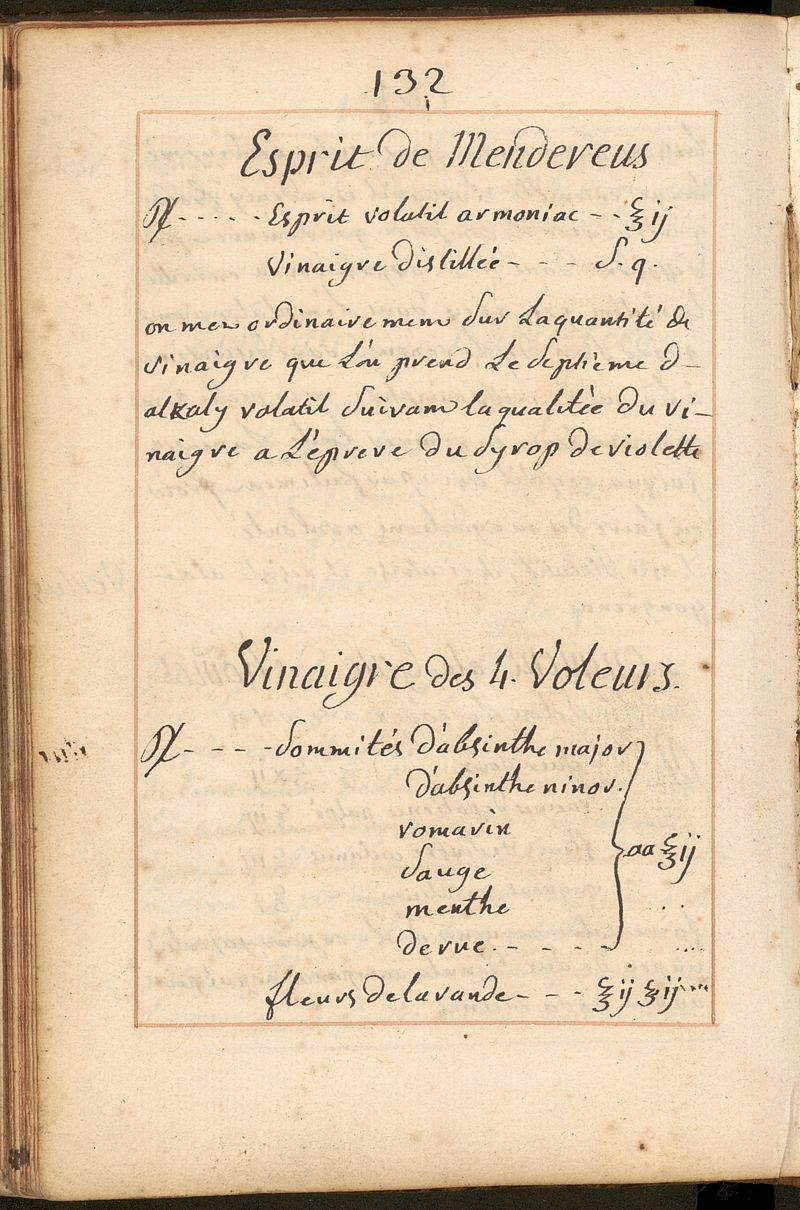 132
Esprit de Mendereus
℞ - - - - - Esprit volatil armoniac - - ℥ij
Vinaigre distillée - - - - S. q.
on met ordinairement sur la quantité de
vinaigre que l'on prend le septieme d-
alkaly volatil suivant la qualitée du vi-
naigre a l'épreve du syrop de violette
Vinaigre des 4. Voleurs.
℞ - - - - Sommités d'absinthe major
d'absinthe ninor.
romarin
sauge
aa ℥ij
menthe
de rue. - - - - -
fleurs de lavande - - - ℥ij ℥ij